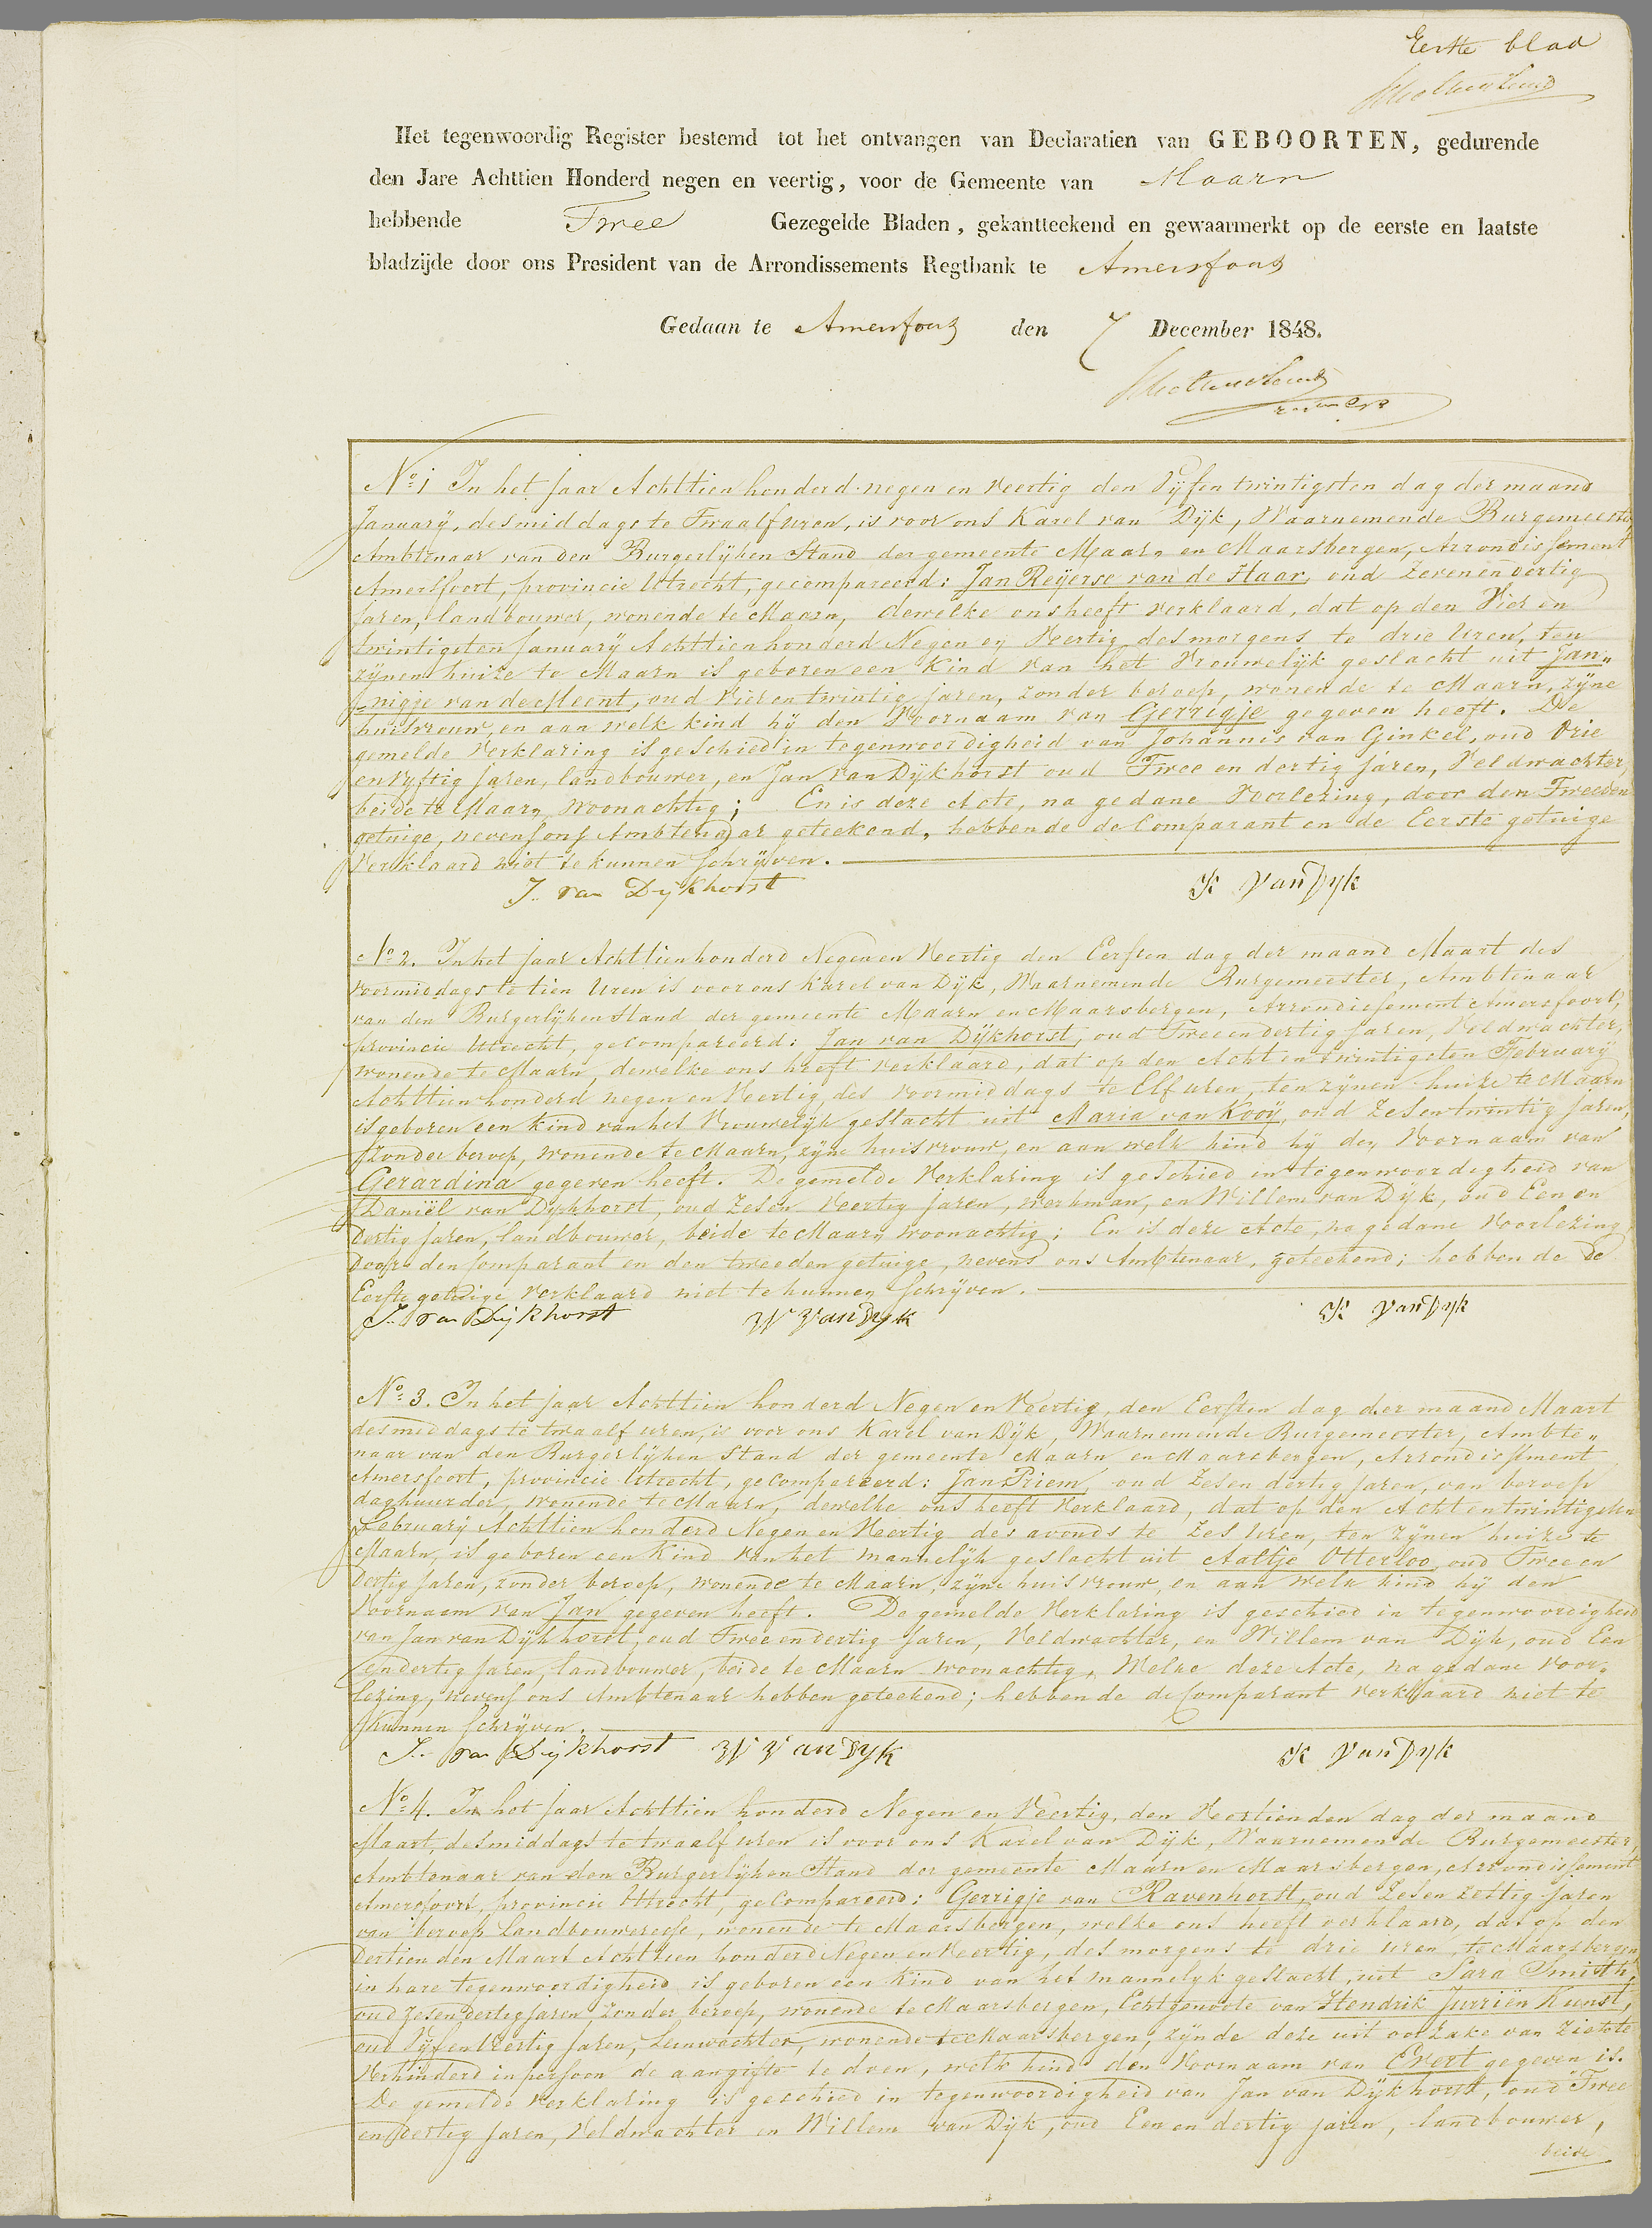 Eerste blad
Het tegenwoordig Register bestemd tot het ontvangen van Declaratien van GEBOORTEN, gedurende
den Jare Achttien Honderd negen en veertig, voor de Gemeente van Maarn
hebbende Twee Gezegelde Bladen, gekantteekend en gewaarmerkt op de eerste en laatste
bladzijde door ons President van de Arrondissements Regtbank te Amersfoort
Gedaan te Amersfoort den 7 December 1848.
No. 1 In het jaar Achttien honderd negen en Veertig den Vijfen twintigsten dag der maand
January, des middags te Twaalf uren, is voor ons Karel van Dijk, Waarnemende Burgemeester,
Ambtenaar van den Burgerlijken Stand der gemeente Maarn en Maarsbergen, Arrondissement
Amersfoort, provincie Utrecht, gecompareerd: Jan Reijerse van de Haar, oud Zeven en dertig
jaren, landbouwer, wonende te Maarn, dewelke ons heeft verklaard, dat op den Vier en
twintigsten January Achttienhonderd Negen en Veertig des morgens te drie Uren, ten
zijnen huize te Maarn is geboren een Kind van het Vrouwelijk geslacht uit Jan„
„nigje van de Meent, oud Vier en twintig jaren, zonder beroep, wonende te Maarn, zijne
huisvrouw, en aan welk kind hij den Voornaam van Gerrigje gegeven heeft. De
gemelde Verklaring is geschied in tegenwoordigheid van Johannis van Ginkel, oud Drie
en Vyftig jaren, landbouwer, en Jan van Dijkhorst oud Twee en dertig jaren, Veldwachter,
beide te Maarn woonachtig; En is deze Acte, na gedane Voorlezing, door den Tweeden
getuige, nevens ons Ambtenaar geteekend, hebbende de Comparant en de Eerste getuige
Verklaard niet te kunnen schrijven.
J. van Dijkhorst K van Dyk
No. 2. In het jaar Achttienhonderd Negen en Veertig den Eersten dag der maand Maart des
voormiddags te tien Uren is voor ons Karel van Dijk, Waarnemende Burgemeester, Ambtenaar
van den Burgerlijken Stand der gemeente Maarn en Maarsbergen, Arrondissement Amersfoort,
provincie Utrecht, gecompareerd: Jan van Dijkhorst, oud Twee en dertig jaren, Veldwachter,
wonende te Maarn, dewelke ons heeft verklaard, dat op den Acht en twintigsten February
Achttien honderd negen en Veertig des voormiddags te Elf uren, ten zijnen huize te Maarn
is geboren een kind van het Vrouwelijk geslacht uit Maria van Kooij, oud Zes en twintig jaren,
zonder beroep, wonende te Maarn, zijne huisvrouw, en aan welk kind hij den Voornaam van
Gerardina gegeven heeft. De gemelde Verklaring is geschied in tegenwoordigheid van
Daniël van Dijkhorst, oud Zes en Veertig jaren, werkman, en Willem van Dijk, oud Een en
dertig jaren, landbouwer, beide te Maarn woonachtig; En is deze Acte, na gedane Voorlezing
door den Comparant en den tweeden getuige, nevens ons Ambtenaar, geteekend; hebbende de
Eerste getuige verklaard niet te kunnen schrijven.
J. van Dijkhorst W van Dyk K van Dyk
No. 3. In het jaar Achttien honderd Negen en Veertig, den Eersten dag der maand Maart
des middags te twaalf uren, is voor ons Karel van Dijk, Waarnemende Burgemeester, Ambte„
naar van den Burgerlijken Stand der gemeente Maarn en Maarsbergen, Arrondissement
Amersfoort, provincie Utrecht, gecompareerd: Jan Priem oud Zes en dertig jaren, van beroep
daghuurder, wonende te Maarn, dewelke ons heeft Verklaard, dat op den Acht en twintigsten
February Achttien honderd Negen en Veertig des avonds te Zes Uren, ten zijnen huize te
Maarn, is geboren een Kind van het mannelijk geslacht uit Aaltje Otterloo, oud Twee en
dertig jaren, zonder beroep, wonende te Maarn, zijne huisvrouw, en aan welk kind hij den
Voornaam van Jan gegeven heeft. De gemelde Verklaring is geschied in tegenwoordigheid
van Jan van Dijkhorst, oud Twee en dertig jaren, Veldwachter, en Willem van Dijk, oud Een
en dertig jaren, landbouwer, beide te Maarn woonachtig, Welke deze Acte, na gedane Voor„
lezing, nevens ons Ambtenaar hebben geteekend; hebbende de Comparant verklaard niet te
kunnen schrijven.
J. van Dijkhorst W van Dyk K van Dyk
No. 4. In het jaar Achttien honderd Negen en Veertig, den Veertienden dag der maand
Maart, des middags te twaalf uren is voor ons Karel van Dijk, Waarnemende Burgemeester
Ambtenaar van den Burgerlijken Stand der gemeente Maarn en Maarsbergen, Arrondissement
Amersfoort, provincie Utrecht, gecompareerd: Gerrigje van Ravenhorst, oud Zes en zestig jaren
van beroep landbouweresse, wonende te Maarsbergen, welke ons heeft verklaard, dat op den
dertienden Maart Achttien honderd Negen en Veertig, des morgens te drie uren, te Maarsbergen,
in hare tegenwoordigheid is geboren een Kind van het mannelyk geslacht, uit Sara Smisth,
oud Zes en dertig jaren zonder beroep, wonende te Maarsbergen, Echtgenoote van Hendrik Jurriën Kunst,
oud Vijf en Veertig jaren, wonende te Maarsbergen, zijnde deze uit oorzake van Ziekte
Verhinderd in persoon de aangifte te doen, welk kind den Voornaam van Evert gegeven is.
De gemelde Verklaring is geschied in tegenwoordigheid van Jan van Dijkhorst, oud Twee
en dertig jaren, Veldwachter en Willem van Dijk, oud Een en dertig jaren, landbouwer,
beide